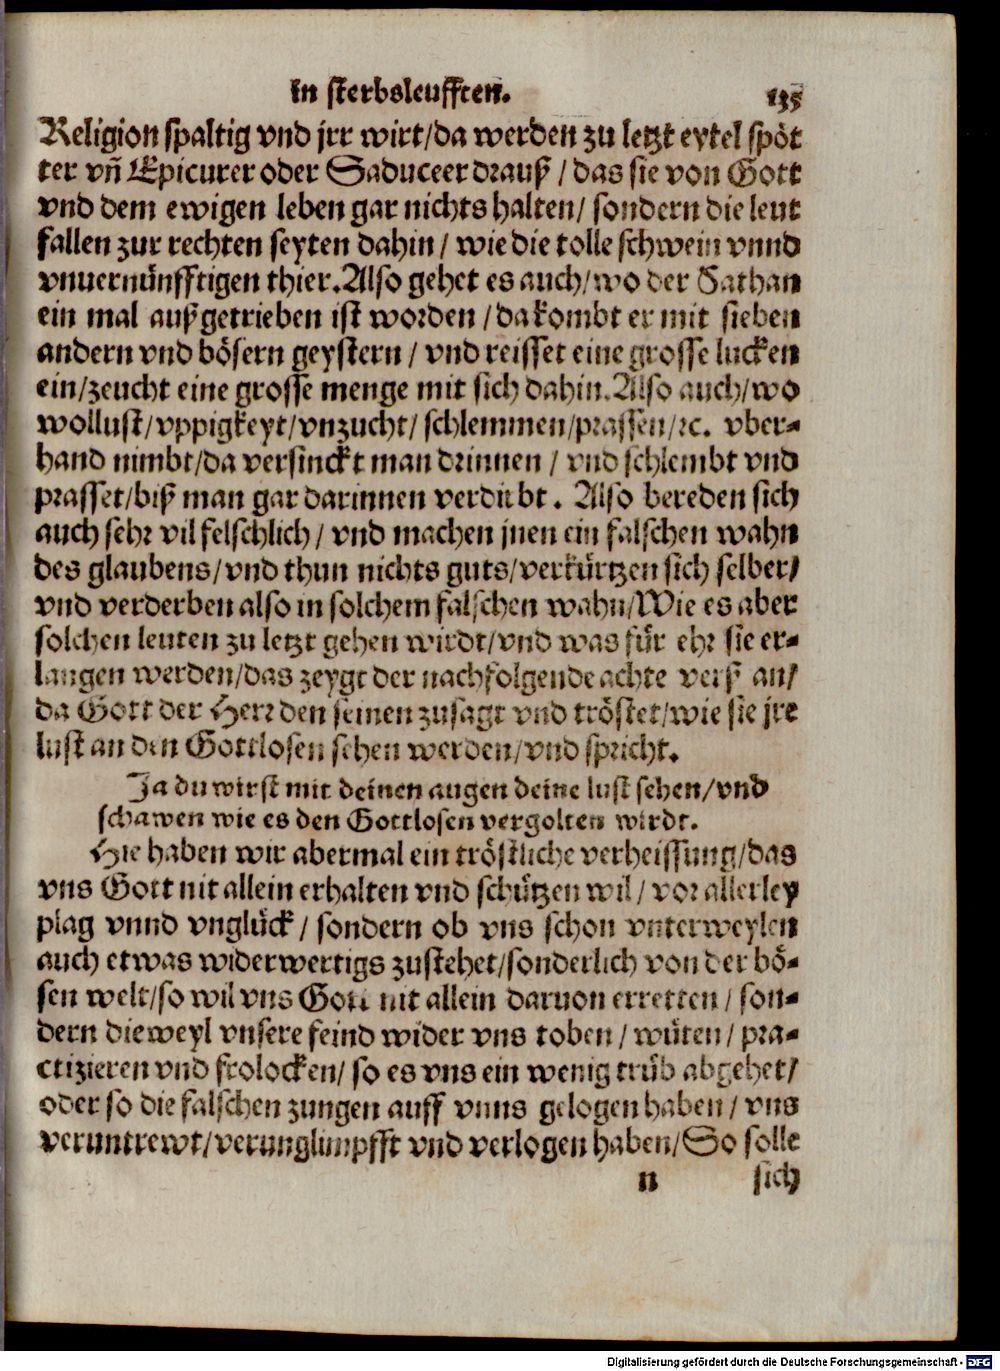 In sterbsleufften. 135
Religion spaltig vnd jrr wirt/da werden zu letzt eytel spöt
ter vñ Epicurer oder Saduceer drauß / das sie von Gott
vnd dem ewigen leben gar nichts halten/ sondern die leut
fallen zur rechten seyten dahin / wie die tolle schwein vnnd
vnuernünfftigen thier. Also gehet es auch/wo der Sathan
ein mal außgetrieben ist worden / da kombt er mit sieben
andern vnd bösern geystern / vnd reisset eine grosse lucken
ein/zeucht eine grosse menge mit sich dahin. Also auch/wo
wollust/vppigkeyt/vnzucht/ schlemmen/prassen/ꝛc. vber-
hand nimbt/da versinckt man drinnen / vnd schlembt vnd
prasset/biß man gar darinnen verdirbt. Also bereden sich
auch sehr vil felschlich / vnd machen jnen ein falschen wahn
des glaubens/vnd thun nichts guts/verkürtzen sich selber/
vnd verderben also in solchem falschen wahn/Wie es aber
solchen leuten zu letzt gehen wirdt/vnd was für ehr sie er-
langen werden/das zeygt der nachfolgende achte verß an/
da Gott der Herr den seinen zusagt vnd tröstet/wie sie jre
lust an den Gottlosen sehen werden/vnd spricht.
Ja du wirst mit deinen augen deine lust sehen/vnd
schawen wie es den Gottlosen vergolten wirdt.
Hie haben wir abermal ein tröstliche verheissung/das
vns Gott nit allein erhalten vnd schützen wil / vor allerley
plag vnnd vnglück / sondern ob vns schon vnterweylen
auch etwas widerwertigs zustehet/sonderlich von der bö-
sen welt/so wil vns Gott nit allein daruon erretten / son-
dern dieweyl vnsere feind wider vns toben / wüten / pra-
ctizieren vnd frolocken/ so es vns ein wenig trüb abgehet/
oder so die falschen zungen auff vnns gelogen haben / vns
veruntrewt/verunglimpfft vnd verlogen haben/So solle
n sich
Digitalisierung gefördert durch die Deutsche Forschungsgemeinschaft - DFG